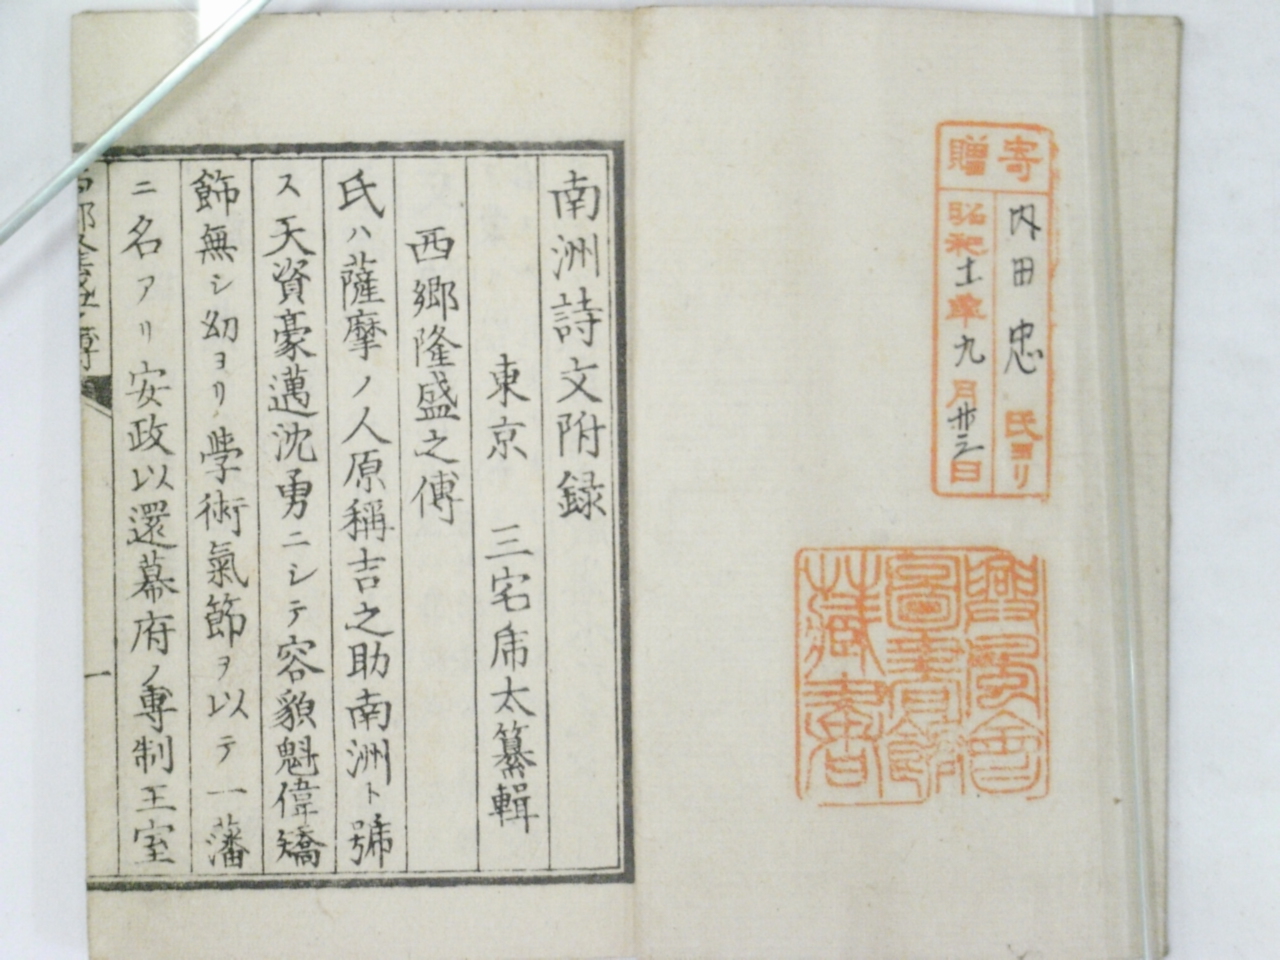 寄贈
内田忠氏ヨリ
昭和十一年九月廿三日
圖書館
藏書
南洲詩文附録
東京 三宅乕太纂輯
西郷隆盛之傳
氏ハ薩摩ノ人原稱吉之助南洲ト號
ス天資豪邁沈勇ニシテ容貌魁偉矯
飾無シ幼ヨリ學術氣節ヲ以テ一藩
ニ名アリ安政以還幕府ノ專制王室
一